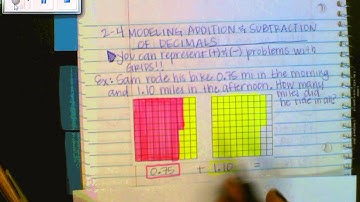 2-4 MODELING ADDITION & SUBTRACTION
OF DECIMALS
You can represent (+) & (-) problems with
GRIDS!!
Ex: Sam rode his bike 0.75 mi in the morning
and 1.10 miles in the afternoon. How many
miles did
he ride in all?
0.75 + 1.10 =